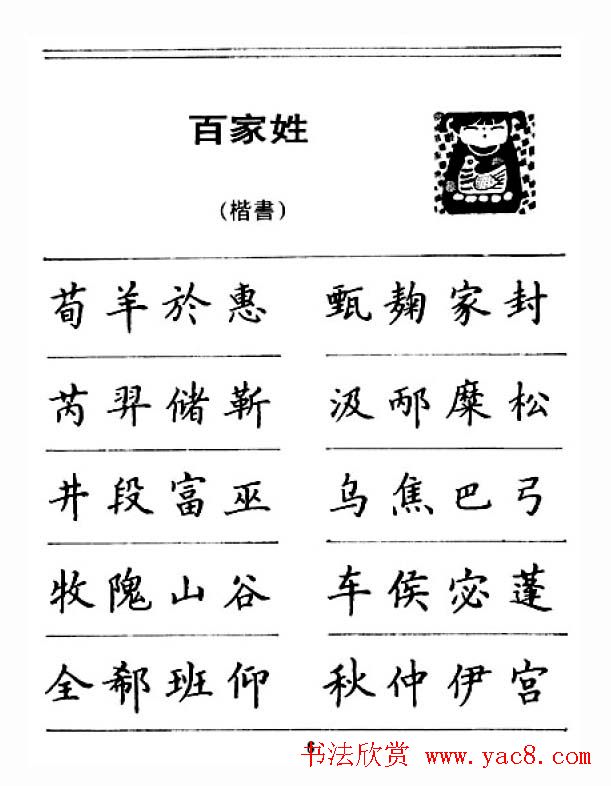 百家姓
（楷書）
荀羊於惠 甄麹家封
芮羿储靳 汲邴糜松
井段富巫 乌焦巴弓
牧隗山谷 车侯宓蓬
全郗班仰 秋仲伊宫
6
书法欣赏 www.yac8.com